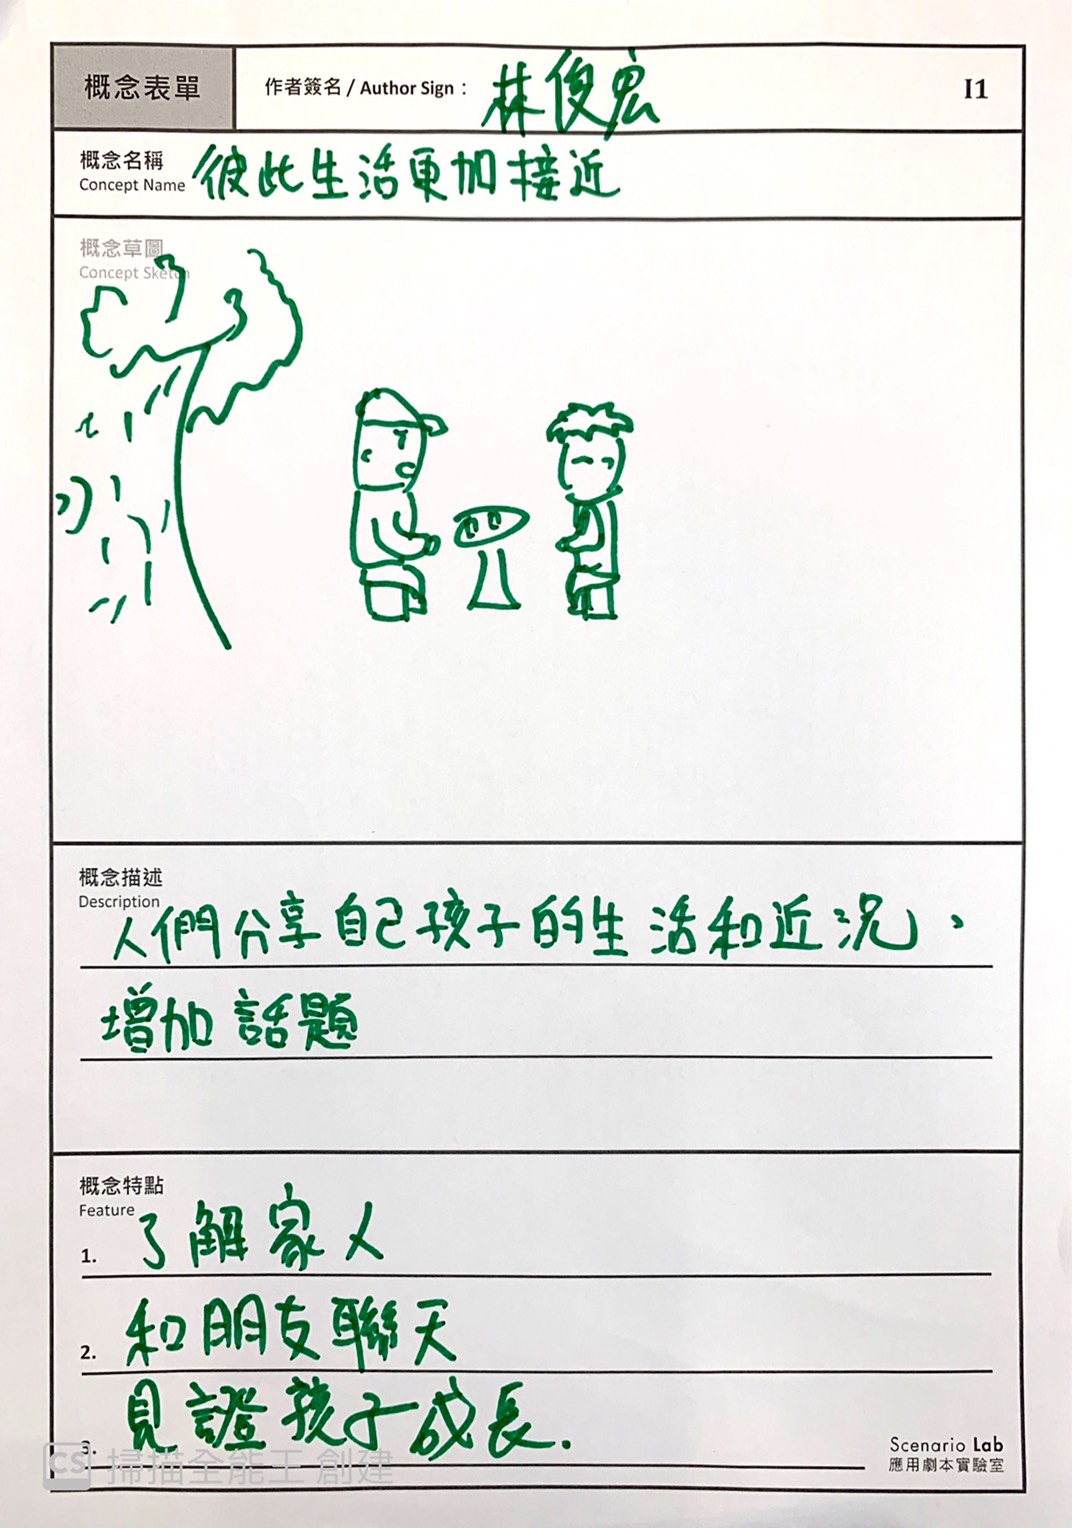 概念表單
作者簽名 / Author Sign：林俊宏
I1
概念名稱
Concept Name
彼此生活更加接近
概念草圖
Concept Sketch
概念描述
Description
人們分享自己孩子的生活和近況，
增加話題
概念特點
Feature
1. 了解家人
2. 和朋友聯天
3. 見證孩子成長.
Scenario Lab
應用劇本實驗室
CS 掃描全能王 創建